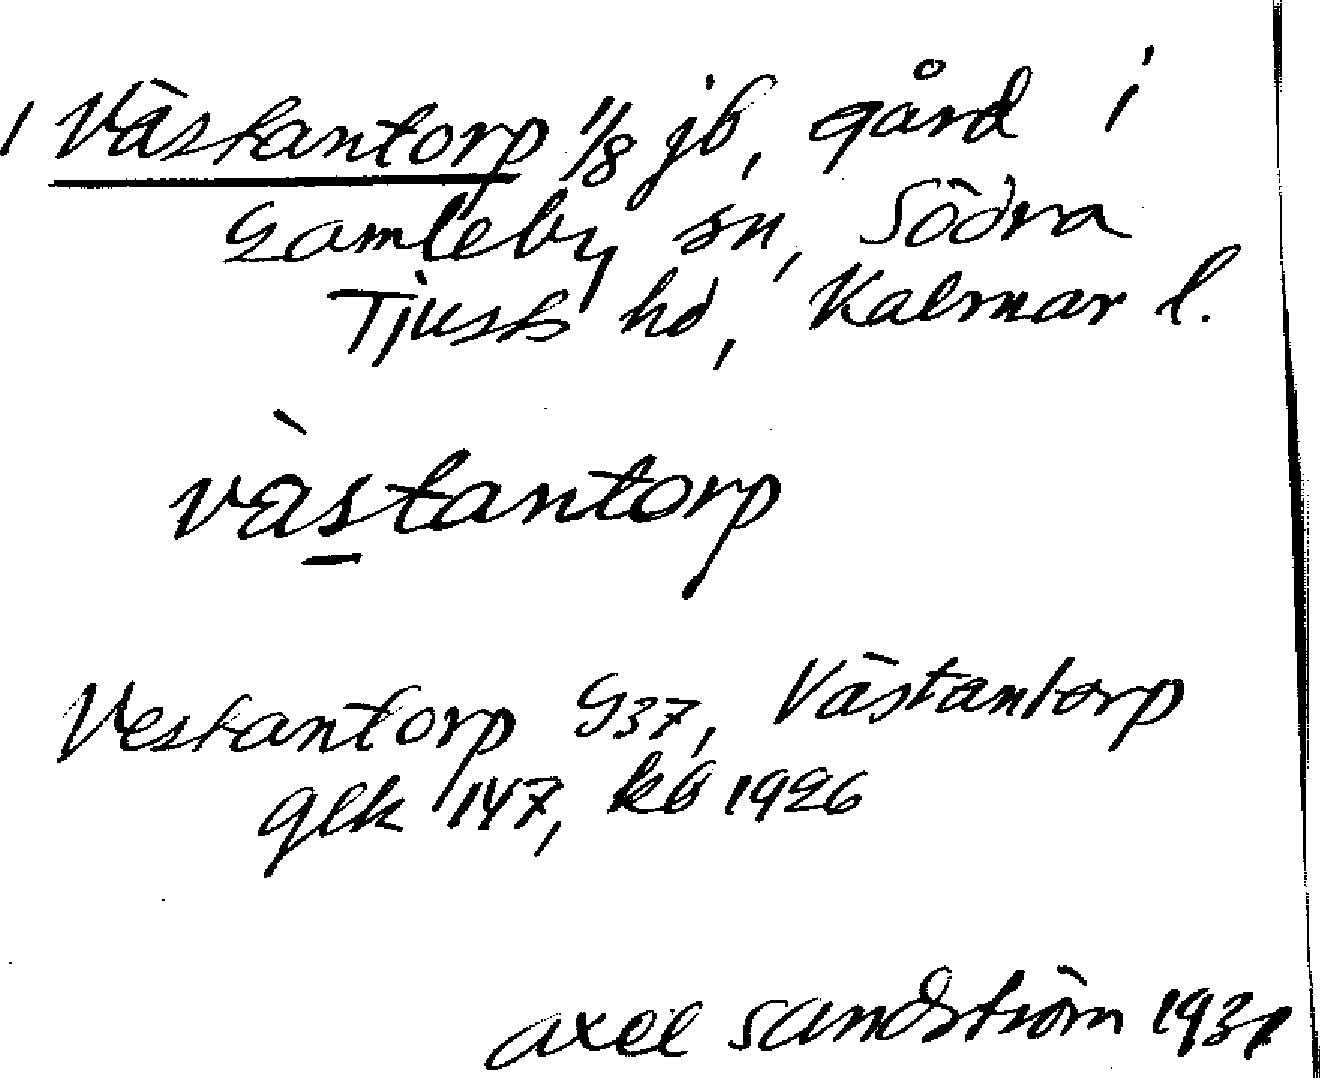 1 Västantorp 1/8 jb, gård i
Gamleby sn, Södra
Tjusts hd, Kalmar l.
vàstantorp
Vestantorp G37, Västantorp
glk 147, kb 1926
Axel Sandström